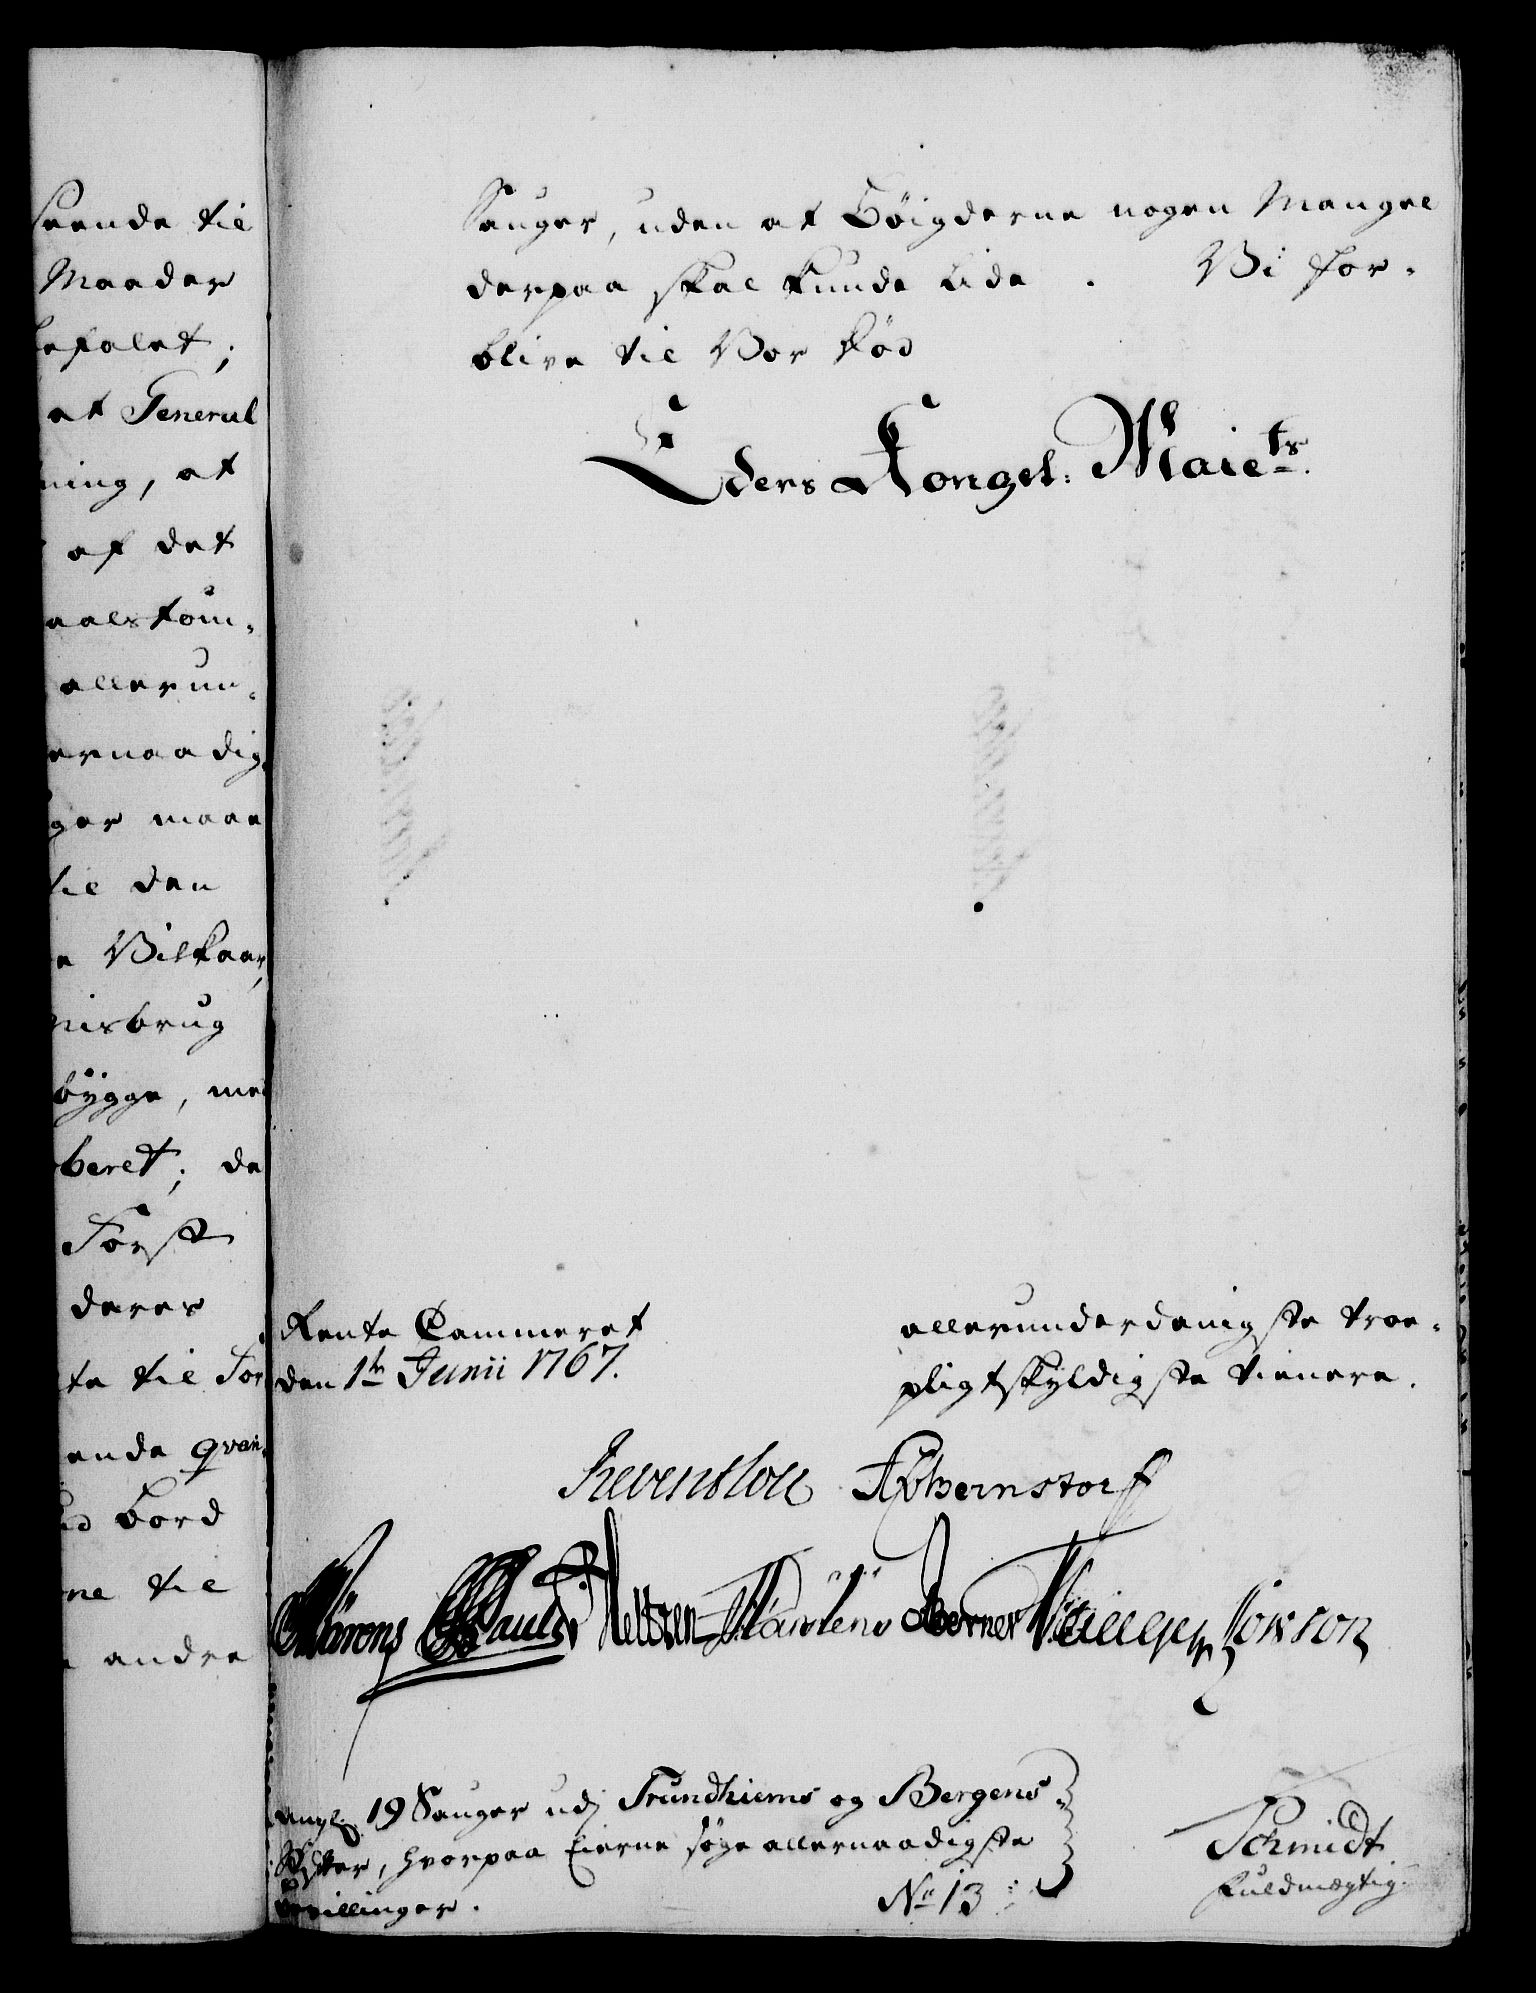 seende til
Maader
befalet;
at General
ning, at
af det
aalskom-
allerun-
ernaadig-
ger maae
til den
e Vilkaar,
misbrug
bygge, med
beret; da
Forst
deres
te til For
ende qvan-
ved Bord
ne til
andre
Sauger, uden at Bøigderne nogen Mangel
derpaa skal kunde lide. Vi for-
blive til Vor Død
Eders Kongel: Maiets.
Rente Cammeret
den 1te Junii 1767.
allerunderdanigste troe-
pligtskyldigste tienere.
Reventlow APBernstorff
Pauli Heltzen Berner
angl. 19 Sauger udj Trundhiems og Bergens
Stifter, hvorpaa Eierne søge allernaadigste
Bevillinger.
No 13
Schmidt
fuldmægtig